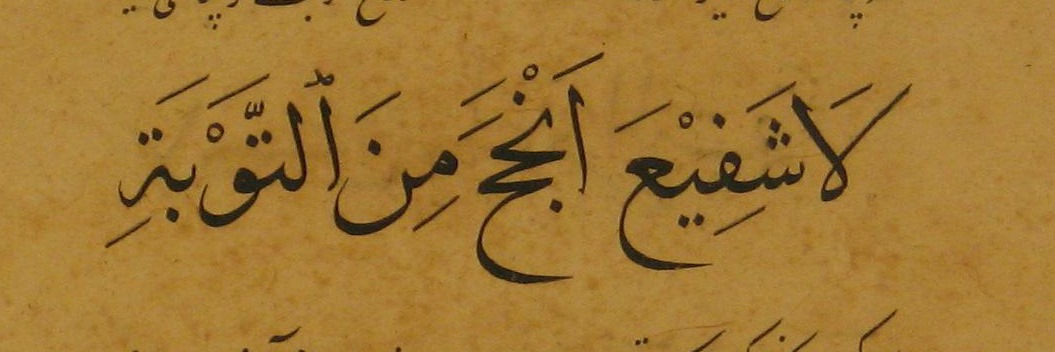 لَا شَفِيْعَ اَنْجَحَ مِنَ ٱلتَّوْبَةِ